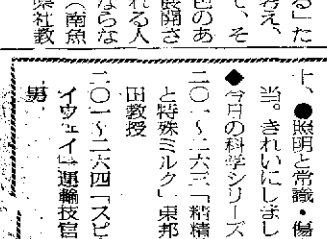 る」た
考え、
て、そ
色のあ
展開さ
れる人
ならな
(南魚
県社教
士、●照明と常識・傷
当。きれいにしまし
◆今日の科学シリーズ
二〇一~二六三「精
と特殊ミルク」東邦
田教授
二〇一~二六四「スピ
イウェイ」運輸技官
男、